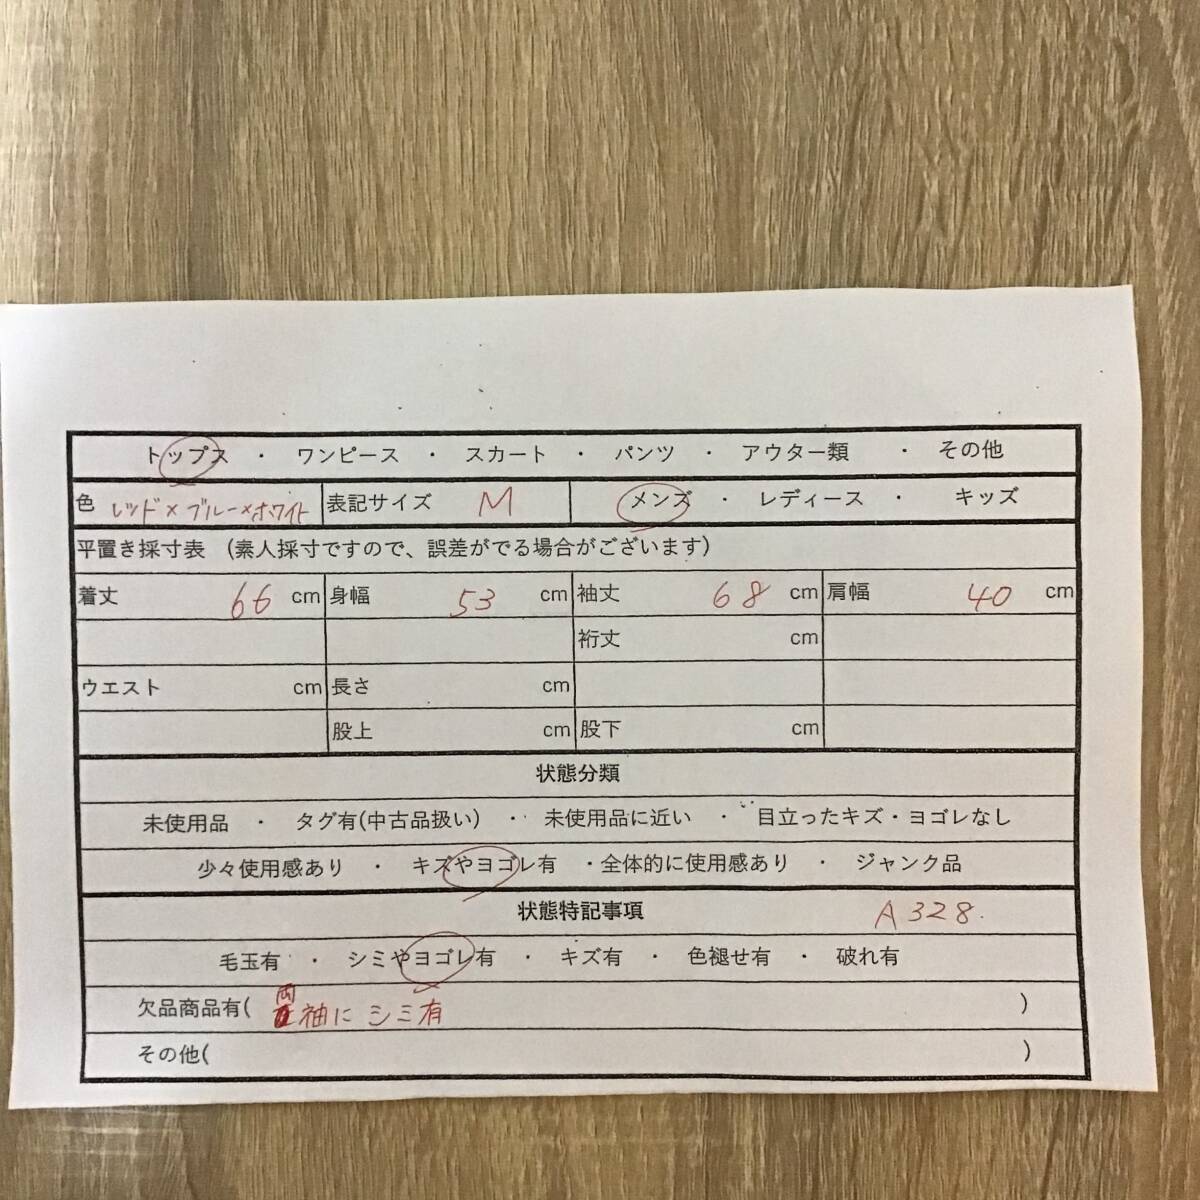 トップス ・ ワンピース ・ スカート ・ パンツ ・ アウター類 ・ その他
色 レッド×ブルー×ホワイト 表記サイズ M メンズ ・ レディース ・ キッズ
平置き採寸表 （素人採寸ですので、誤差がでる場合がございます）
着丈 66 cm 身幅 53 cm 袖丈 68 cm 肩幅 40 cm
裄丈 cm
ウエスト cm 長さ cm
股上 cm 股下 cm
状態分類
未使用品 ・ タグ有(中古品扱い) ・ 未使用品に近い ・ 目立ったキズ・ヨゴレなし
少々使用感あり ・ キズやヨゴレ有 ・全体的に使用感あり ・ ジャンク品
状態特記事項 A328.
毛玉有 ・ シミやヨゴレ有 ・ キズ有 ・ 色褪せ有 ・ 破れ有
欠品商品有( 両袖にシミ有 )
その他( )